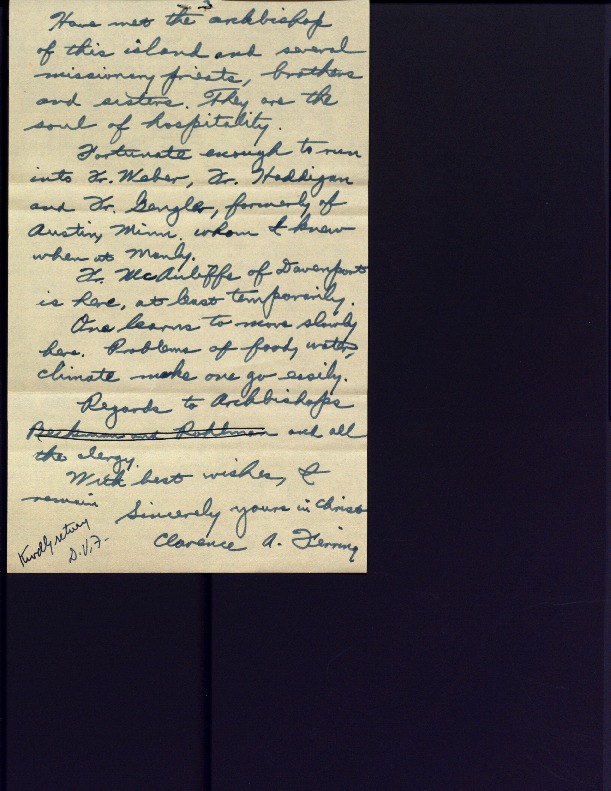 - 3
Have met the archbishop
of this island and several
missionary priests, brothers
and sisters. They are the
soul of hospitality.
Fortunate enough to run
into Fr. Weber, Fr. Haddigan
and Fr. Gengler, formerly of
Austin, Minn. whom I knew
when at Manly.
Fr. McAuliffe of Davenport
is here, at least temporarily.
One learns to move slowly
here. Problems of food, water,
climate make one go easily.
Regards to Archbishops
Beckman and Rohlman and all
the clergy.
With best wishes, I
remain
Sincerely yours in Christ
Clarence A. Ferring
Kindly return
D.V.F.